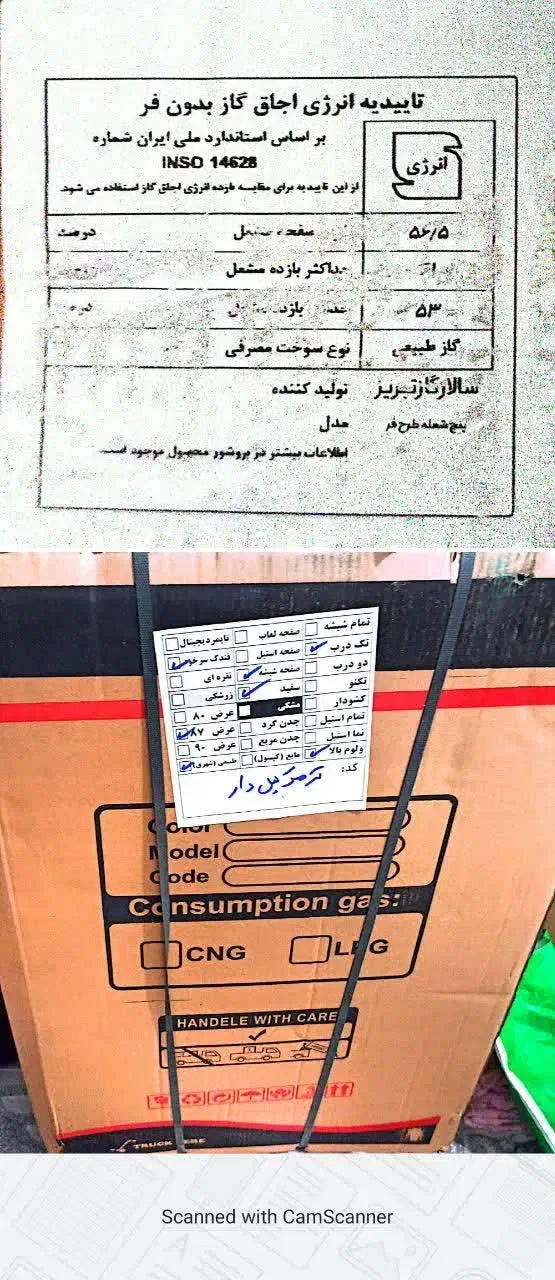 تاییدیه انرژی اجاق گاز بدون فر
بر اساس استاندارد ملی ایران شماره
INSO 14628
از این تاییدیه برای مقایسه بازده انرژی اجاق گاز استفاده می شود.
انرژی
۵۶/۵ صفحه درصد
حداکثر بازده مشعل
۵۳ بازده
گاز طبیعی نوع سوخت مصرفی
سالارگازتبریز تولید کننده
پنج شعله طرح فر مدل
اطلاعات بیشتر در بروشور محصول موجود است.
تمام شیشه صفحه لعاب تایمردیجیتال
تک درب صفحه استیل فندک سرخود
دو درب صفحه شیشه نقره ای
تکنو سفید زرشکی
کشودار مشکی عرض ۸۰
تمام استیل چدن گرد عرض ۸۷
نما استیل چدن مربع عرض ۹۰
ولوم بالا مایع (کپسول) طبیعی (شهری)
کد:
ترموکوپل دار
Color
Model
Code
Consumption gas:
CNG LPG
HANDELE WITH CARE
Scanned with CamScanner